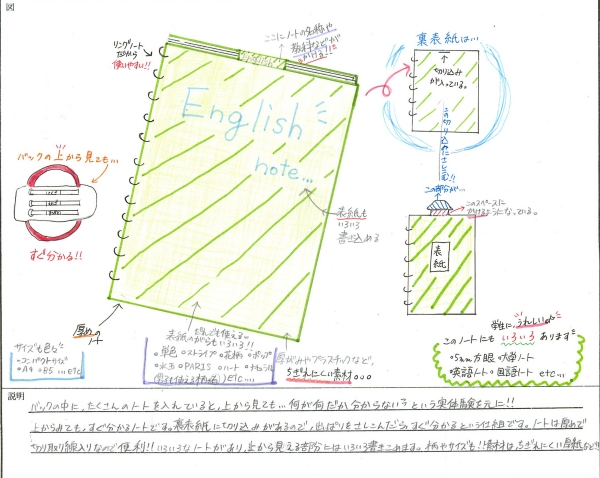 図
リングノート
だから
使いやすい!!
ここにノートの名称や
教科などが
かける…!!
English
note...
裏表紙は…
切り込み
が入っている。
この切り込みにさしこむ!!
この部分が…
このスペースに
かけるようになっている。
表紙
バックの上から見ても…
すぐ分かる!!
表紙も
いろいろ
書き込める
厚めの
ノート
サイズも色々
・コンパクトサイズ
・A4 ・B5 …etc
表紙のがらもいろいろ!!
・単色 ・ストライプ ・花柄 ・ポップ
・水玉 ・PARIS ・ハート ・ナチュラル
etc…
厚紙やプラスチックなど、
ちぎれにくい素材。。。
学生に、うれしい
このノートにも いろいろ あります
・5mm方眼 ・大学ノート
・英語ノート ・国語ノート etc…
説明
バックの中に、たくさんのノートを入れていると、上から見ても…何が何だか分からない?という実体験を元に!!
上からみても、すぐ分かるノートです。裏表紙に切り込みがあるので、出っぱりをさしこんだら、すぐ分かるという仕組です。ノートは厚めで
切り取り線入りなので便利!!いろいろなノートがあり、上から見える部分にはいろいろ書きこめます。柄やサイズも!!素材は、ちぎれにくい厚紙など!!